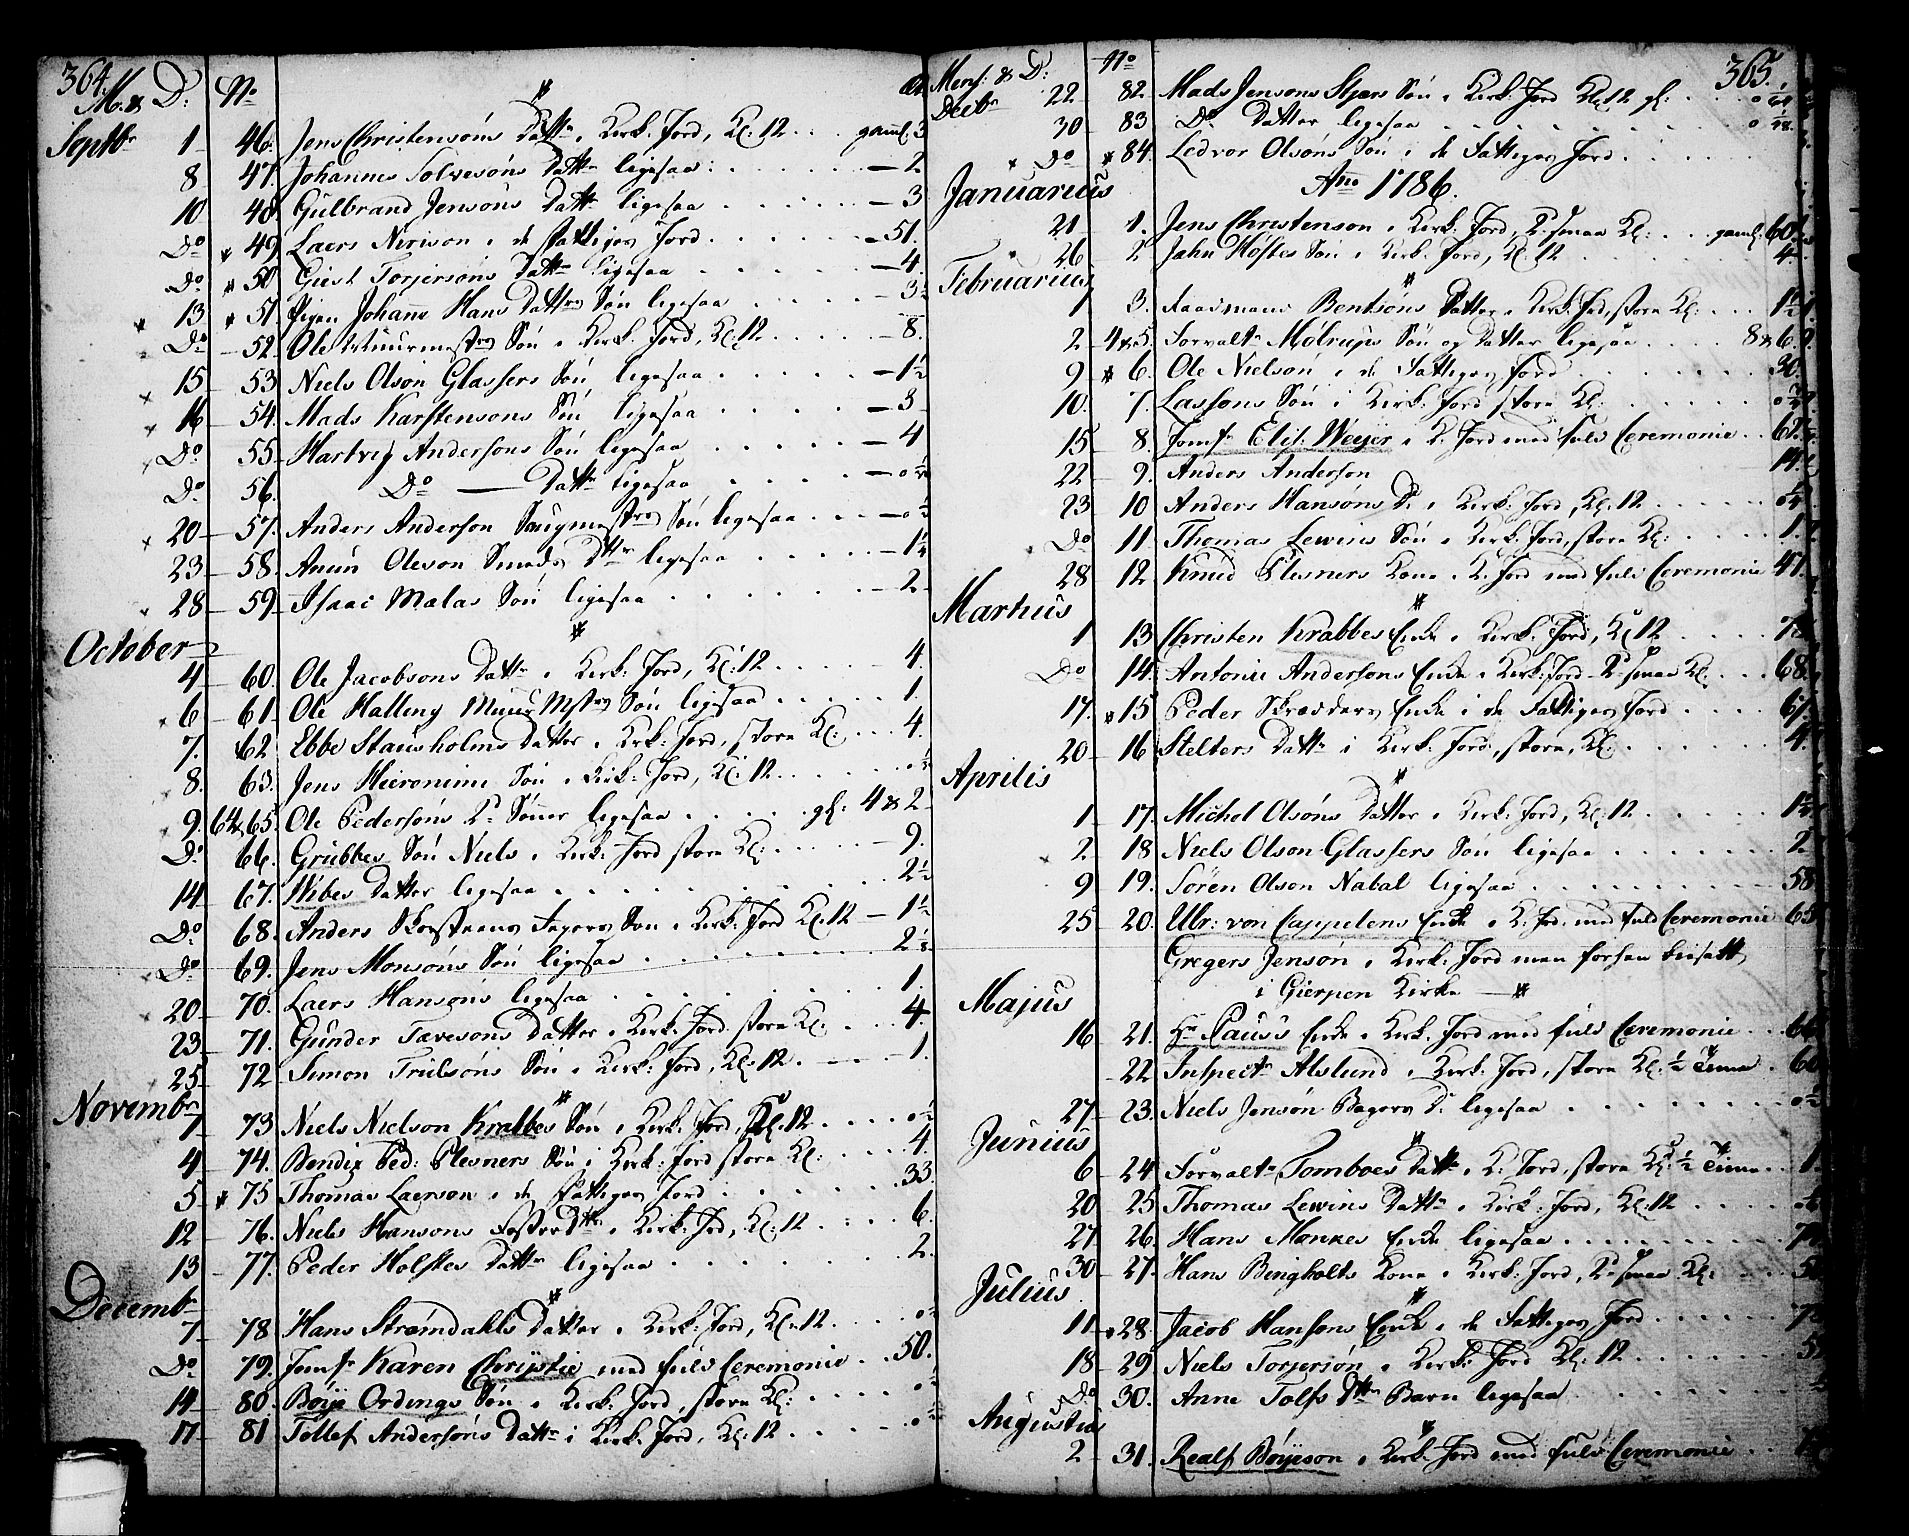 364.
M: & D: No
Septbr 1 46. Jens Christensøns Dattr i Kirk: Jord, Kl: 12 . . gaml. 3
8 47. Johannes Solvesøns Dattr ligesaa : . . . . . — 2
10 48. Gulbrand Jensøns Dattr ligesaa . . . . . . — 3
Do * 49. Laers Nirison i de fattiges Jord . . . . . . — 51.
Do * 50 Giest Torjersøns Dattr ligesaa . . . . . — 4.
13 * 51. Pigen Johanne Hans Dattrs Søn ligesaa . . . . — 3½
Do — 52. Ole Muurmestrs Søn i Kirk: Jord, Kl: 12 . . . . — 8.
15 — 53 Niels Olson Glassers Søn ligesaa . . . . . — 1½
16 — 54. Mads Karstensons Søn ligesaa . . . . — 3
Do 55. Hartvig Andersons Søn ligesaa . . . . . — 4
Do 56. Do — Dattr ligesaa . . . . . — 0
20 — 57. Anders Anderson Saugmestrs Søn ligesaa . . . — 0
23 — 58. Anun Oleson Smeds Dtr ligesaa . . . . . — 1¼
28 — 59 — Isaac Mælas Søn ligesaa . . . . . . — 2 —
October
4 — 60. Ole Jacobsons Dattr i Kirk: Jord, Kl: 12 . . . . — 4.
6 — 61. Ole Halling Muur Mstrs Søn ligesaa . . . . . . 1.
7. 62. Ebbe Stausholms Datter i Kirk: Jord, store Kl: . . . 4.
8. 63. Jens Hieronimi Søn i Kirk: Jord, Kl: 12 . . . . . 0
9. 64 & 65. Ole Pedersøns 2de Sønner ligesaa . . . . gl: 4 & 2 —
Do 66. Grubbes Søn Niels i Kirk: Jord store Kl: . . . . — 9.
14 — 67. Wibes Datter ligesaa . . . . . . . . . 2½
Do 68. Anders Søn i Kirk: Jord Kl: 12 — 1½
Do 69. Jens Monsøns Søn ligesaa . . . . . . . . 2
20 — 70. Laers Hansøns ligesaa . . . . . . . . . 1.
23 — 71. Gunder Tavesøns Datter i Kirk: Jord store Kl: . . . 4.
25 — 72 Simon Trulsøns Søn i Kirk: Jord, Kl: 12 . . . — 1.
Novembr
7 — 73 Niels Nielson Krabbes Søn i Kirk: Jord, Kl: 12 . . . . 0
4 — 74. Bendix Ped: Plesners Søn i Kirk: Jord store Kl: . . . . 4.
5 — * 75 Thomas Laerson i de fattiges Jord . . . . . . . 33
12 — 76. Niels Hansons Dtr i Kirk: Jrd, Kl: 12 . . . . 6.
13 — 77. Peder Holstes Dattr ligesaa . . . . . . . 2.
Decembr
7 — 78 Hans Strømdahls Datter i Kirk: Jord, Kl: 12 . . . . 0
Do 79. Jomfr Karen Chrystie med fuld Ceremonie . . 50.
14 — 80. Bøye Ordings Søn i Kirk: Jord, store Kl: . . . . . 0
17 — 81 Tollef Andersøns Dattr i Kirk: Jord, Kl: 12 . . . . . 0
365.
Mens: & D: No
Decbr 22 — 82. Mads Jensons Stjers Søn i Kirk: Jord Kl: 12 gl: . . . 0
30 — 83 Do Datter ligesaa . . . . . . . . . 0
Do * 84. Ledvor Olsøns Søn i de Fattiges Jord . . . . . .
Januarius Ano 1786.
21 1. Jens Christenson i Kirk: Jord, 2de smaa Kl: . . . gaml: 60
26 — 2 Jahn Høftes Søn i Kirk: Jord, Kl: 12 . . . . . . . 4
Februarius
1 3. Raadmand Bentsøns Datter i Kirk: Jrd, store Kl: . . . 1½
2 — 4 & 5. Forvaltr Mølrups Søn og Datter ligesaa . . . . 8 & 6.
9 * 6. Ole Nielsøn i de Fattiges Jord . . . . . . . 30.
10. 7. Lassons Søn i Kirk: Jord store Kl: . . . . . . 0
15 — 8. Jomfr Elis: Weyer i K: Jord med fuld Ceremonie . . 62.
22 — 9. Anders Anderson 14.
23 10 Anders Hansons D: i Kirk: Jord, Kl: 12 . . . . . 0
Do 11. Thomas Lewins Søn i Kirk: Jord, store Kl: . . . . 1.
28 12 Knud Plesners Kone i K: Jord med fuld Ceremonie 47.
Martius
1 13 Christen Krabbes Enke i Kirk: Jord, Kl 12 . . . .
Do 14. Antoni Andersons Enke i Kirk: Jord 2de smaa Kl: . . . 68.
17. * 15 Peder Skræders Enke i de Fattiges Jord . . . . 67.
20 — 16 Stelters Dattr i Kirk: Jord, store, Kl: . . . . . . 4.
Aprilis
1 — 17. Michel Olsøns Datter i Kirk: Jord, Kl: 12 . . . . . 1½
2 — 18 Niels Olson Glassers Søn ligesaa . . . . . . 2
9 — 19. Søren Olson Nabal ligesaa . . . . . . . . 58
25 — 20. Ulr: von Cappelens Enke i K: Jrd. med fuld Ceremonie 65
Gregers Jensøn i Kirk: Jord men forhen biesatt
i Gierpen Kirke — *
Majus
16 21. Hr Paus's Enke i Kirk: Jord med fuld Ceremonie . . 66
22 — Inspectr Alslund i Kirk: Jord, store Kl: ½ Time . 60
27 — 23. Niels Jensøn Bagers D: ligesaa . . . . . . . . 0
Junius
6 24 Forvaltr Tomboes Dattr i K: Jord, store Kl: ½ Time . . 1.
20 25 Thomas Lewins Dattr i Kirk: Jord, Kl: 12 . . . . .
27 26. Hans Monkes Enke ligesaa . . . . . . . . .
30 — 27. Hans Bingholts Kone i Kirk: Jord, 2de smaa Kl: . . .
Julius
11 * 28. Jacob Hansons Enke i de Fattiges Jord . . . . .
18 — 29. Niels Torjersøn i Kirk: Jord Kl: 12 . . . . . .
Do 30. Anne Tolfs Dtrs Barn ligesaa . . . . . . .
Augustus
2 — 31. Realf Bøyeson i Kirk: Jord med fuld Ceremonie . .